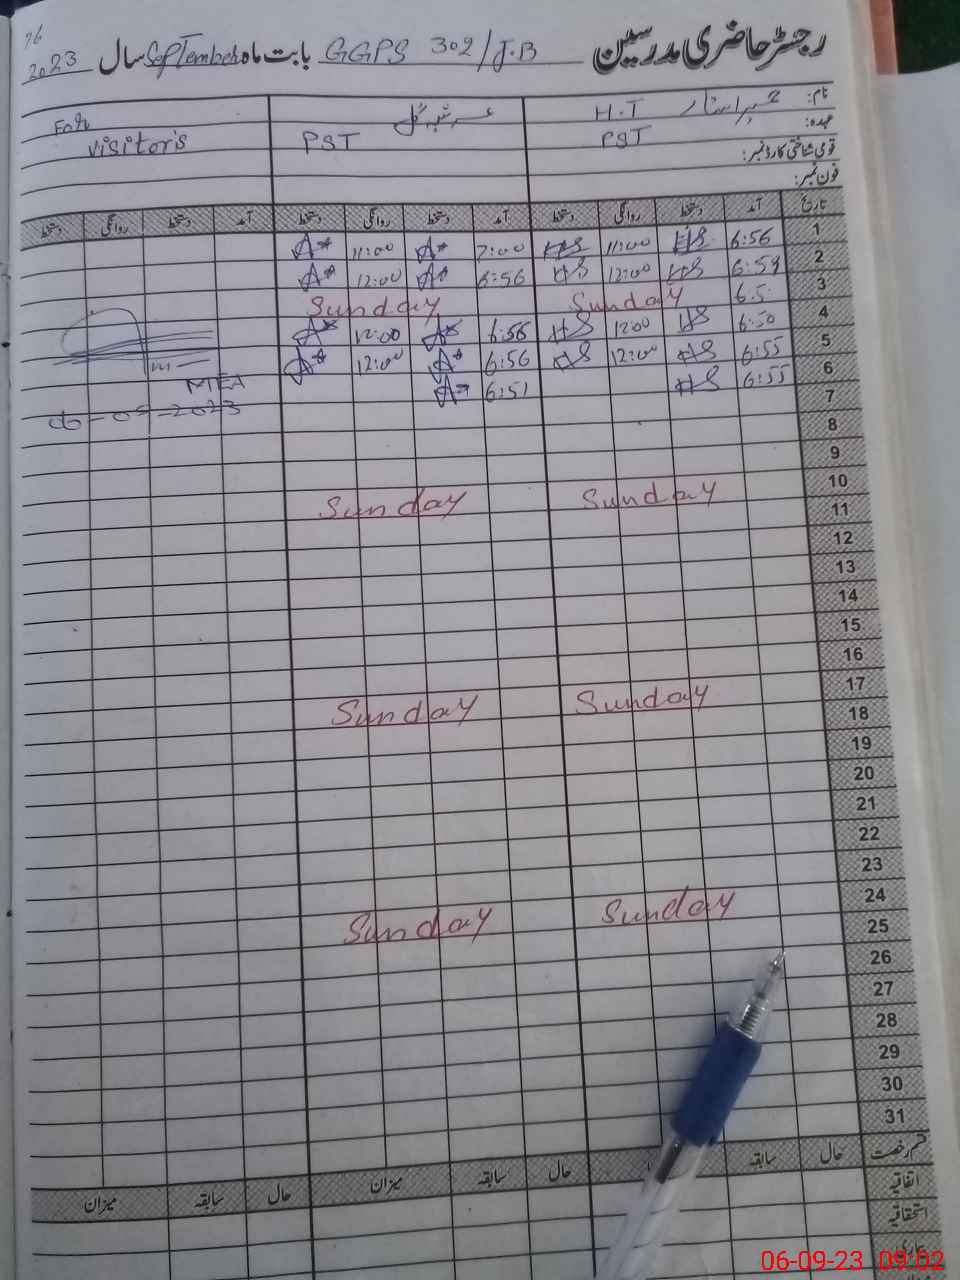 رجسٹر حاضری مدرسین GGPS 302/J.B بابت ماہ September سال 2023
76
نام: H.T
عہدہ: PST PST For visitor's
قومی شناختی کارڈ نمبر:
فون نمبر:
تاریخ آمد دستخط روانگی دستخط آمد دستخط روانگی دستخط آمد دستخط روانگی دستخط
1 6:56 HS 11:00 HS 7:00 A 11:00 A
2 6:59 HS 12:00 HS 6:56 A 12:00 A
3 6:5 Sunday Sunday
4 6:50 HS 12:00 HS 6:56 A 12:00 A
5 6:55 HS 12:00 HS 6:56 A 12:00 A
6 6:55 HS 6:51 A MEA
7 06-09-2023
8
9
10 Sunday Sunday
11
12
13
14
15
16
17 Sunday Sunday
18
19
20
21
22
23
24 Sunday Sunday
25
26
27
28
29
30
31
قسم رخصت حال سابقہ حال سابقہ میزان حال سابقہ میزان
اتفاقیہ
استحقاقیہ
06-09-23 09:02